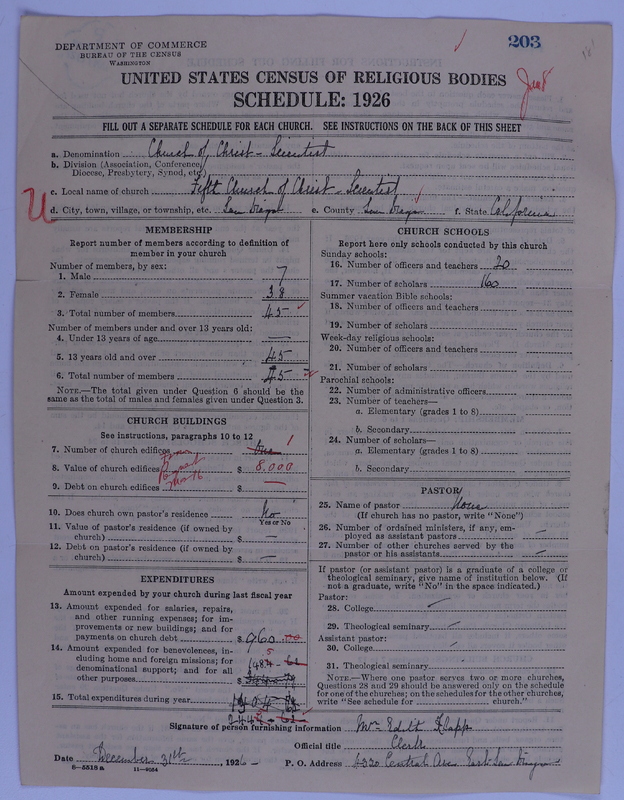 203
DEPARTMENT OF COMMERCE
BUREAU OF THE CENSUS
WASHINGTON
UNITED STATES CENSUS OF RELIGIOUS BODIES
SCHEDULE: 1926
FILL OUT A SEPARATE SCHEDULE FOR EACH CHURCH. SEE INSTRUCTIONS ON THE BACK OF THIS SHEET
a. Denomination Church of Christ - Scientist
b. Division (Association, Conference,
Diocese, Presbytery, Synod, etc.)
c. Local name of church Fifth Church of Christ - Scientist
d. City, town, village, or township, etc. San Diego e. County San Diego f. State California
MEMBERSHIP
Report number of members according to definition of
member in your church
Number of members, by sex:
1. Male 7
2. Female 38
3. Total number of members 45
Number of members under and over 13 years old:
4. Under 13 years of age —
5. 13 years old and over 45
6. Total number of members 45
NOTE.—The total given under Question 6 should be the
same as the total of males and females given under Question 3.
CHURCH BUILDINGS
See instructions, paragraphs 10 to 12
7. Number of church edifices One 1
8. Value of church edifices $ 8,000
9. Debt on church edifices $ —
10. Does church own pastor's residence No
Yes or No
11. Value of pastor's residence (if owned by
church) $ —
12. Debt on pastor's residence (if owned by
church) $ —
EXPENDITURES
Amount expended by your church during last fiscal year
13. Amount expended for salaries, repairs,
and other running expenses; for im-
provements or new buildings; and for
payments on church debt $ 960.00
14. Amount expended for benevolences, in-
cluding home and foreign missions; for
denominational support; and for all
other purposes $
15. Total expenditures during year $
CHURCH SCHOOLS
Report here only schools conducted by this church
Sunday schools:
16. Number of officers and teachers 20
17. Number of scholars 160
Summer vacation Bible schools:
18. Number of officers and teachers
19. Number of scholars
Week-day religious schools:
20. Number of officers and teachers
21. Number of scholars
Parochial schools:
22. Number of administrative officers
23. Number of teachers—
a. Elementary (grades 1 to 8)
b. Secondary
24. Number of scholars—
a. Elementary (grades 1 to 8)
b. Secondary
PASTOR
25. Name of pastor None
(If church has no pastor, write "None")
26. Number of ordained ministers, if any, em-
ployed as assistant pastors —
27. Number of other churches served by the
pastor or his assistants —
If pastor (or assistant pastor) is a graduate of a college or
theological seminary, give name of institution below. (If
not a graduate, write "No" in the space indicated.)
Pastor:
28. College
29. Theological seminary
Assistant pastor:
30. College
31. Theological seminary
NOTE.—Where one pastor serves two or more churches,
Questions 28 and 29 should be answered only on the schedule
for one of the churches; on the schedules for the other churches,
write "See schedule for church."
Signature of person furnishing information Mrs Edith Klapp
Official title Clerk
Date December 31th, 1926 P. O. Address 4320 Central Ave East San Diego
6—5518a 11—9054